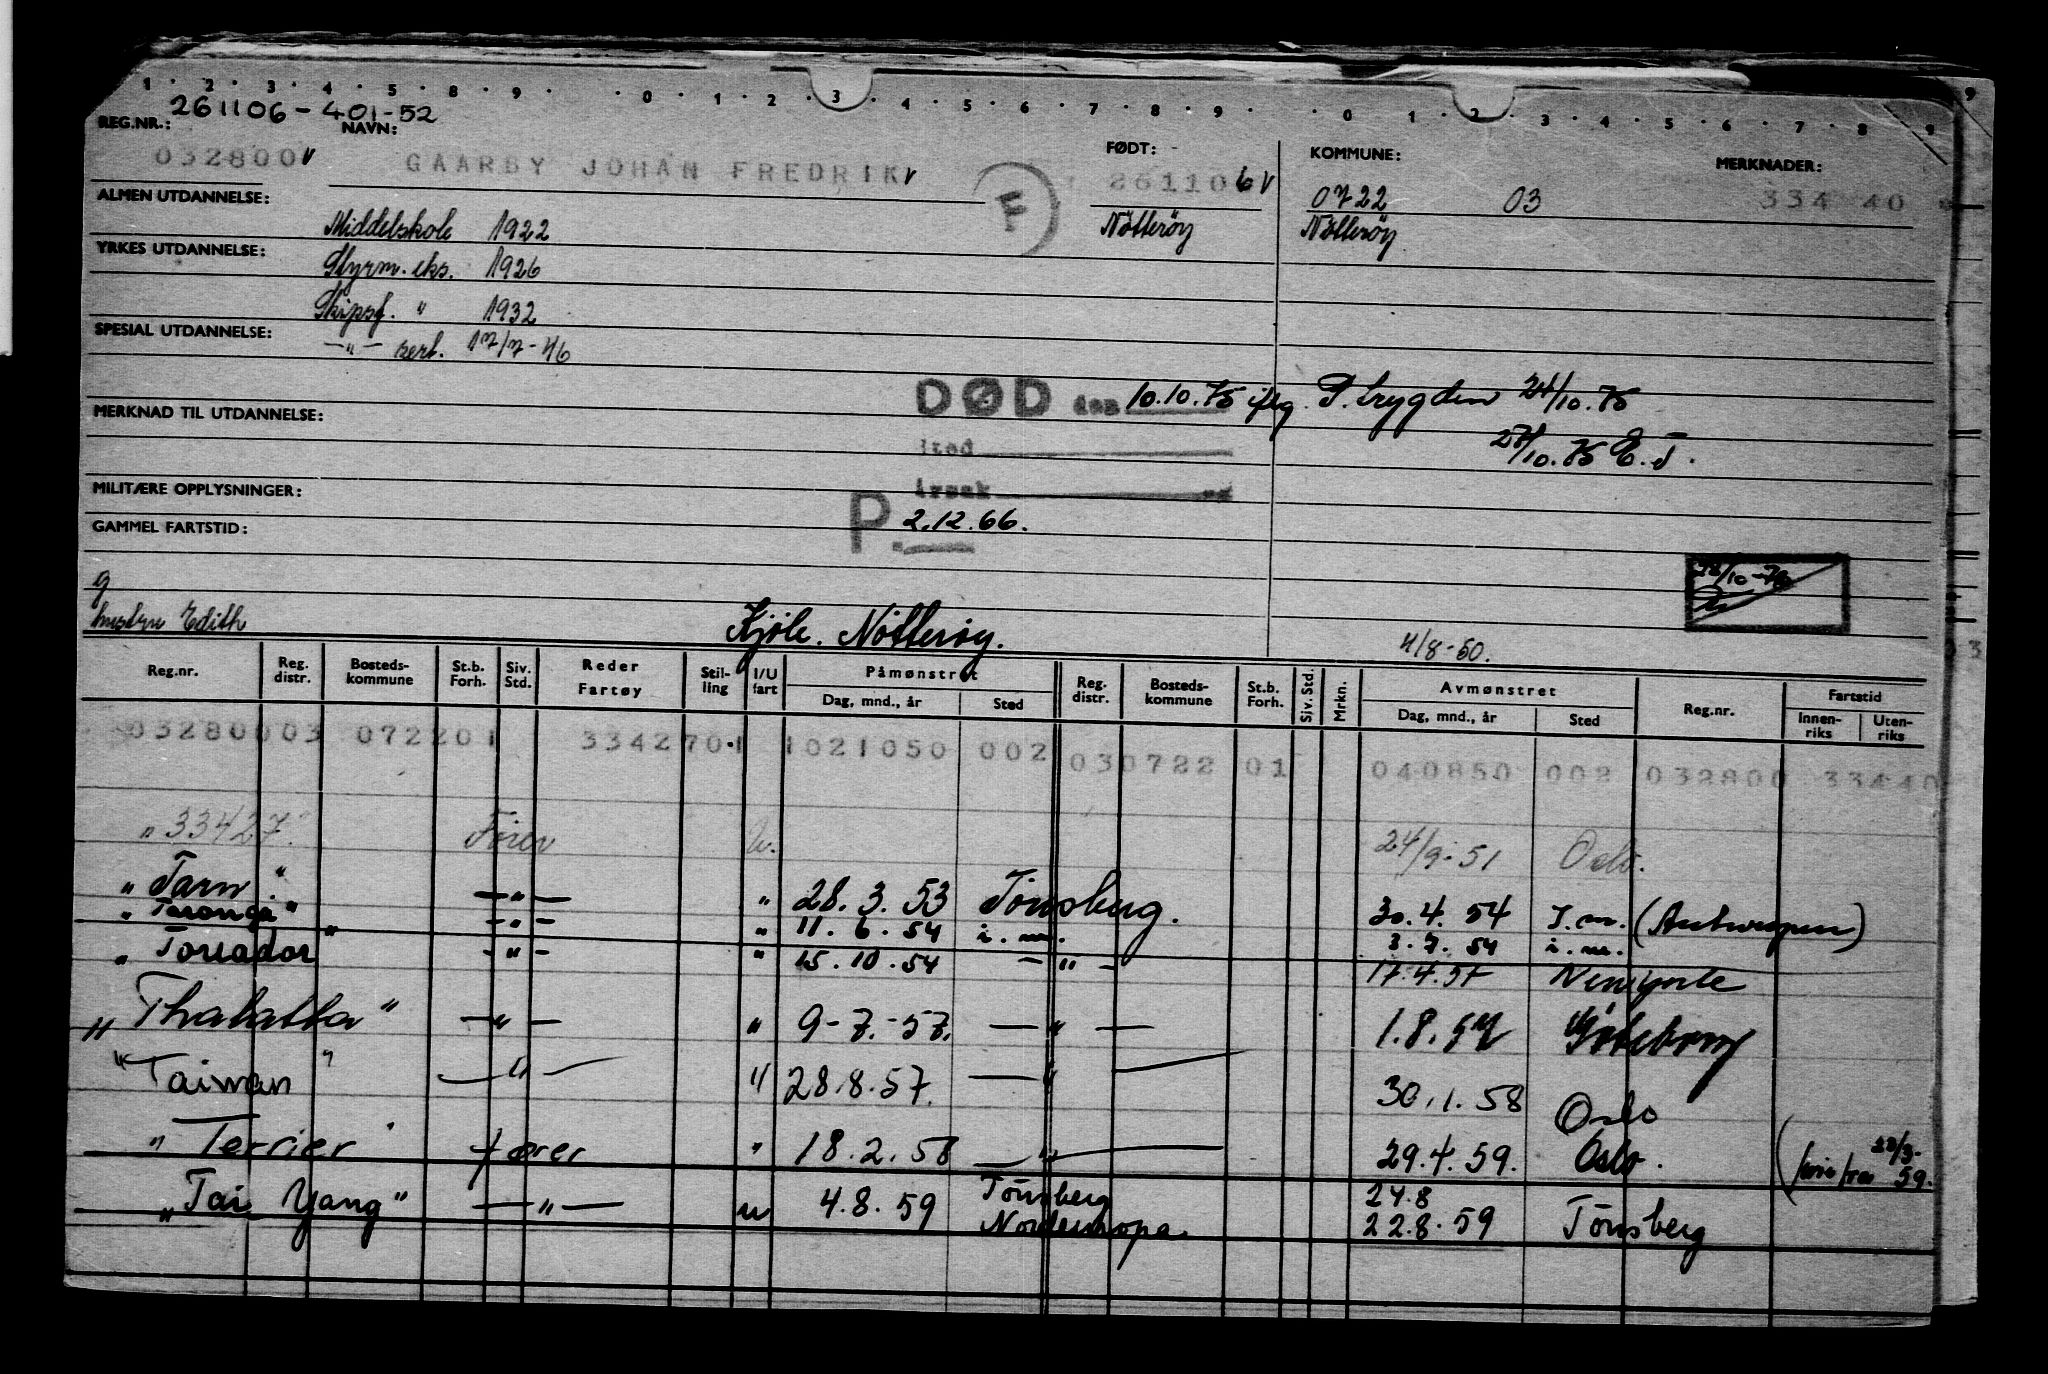 1 . 2 . 3 . 4 . 5 . 8 . 9 . . 0 . 1 . 2 . 3 . 4 . 5 . 6 . 7 . 8 . 9 . . 0 . 1 . 2 . 3 . 4 . 5 . 6 . 7 . 8 . 9
261106-401-52
REG.NR.: NAVN: FØDT: KOMMUNE: MERKNADER:
032800 v GAARBY JOHAN FREDRIK v 261106 v 0722 03 334 40
ALMEN UTDANNELSE: Middelskole 1922 Nötteröy Nötteröy
YRKES UTDANNELSE: Styrm. eks. 1926
Skipsf. " 1932
SPESIAL UTDANNELSE: —"— sert. 17/7-46
DØD den 10.10.75 iflg. P. trygden 24/10.75
MERKNAD TIL UTDANNELSE:
Sted 27/10.75 E.J.
MILITÆRE OPPLYSNINGER: Årsak
P. 2.12.66.
GAMMEL FARTSTID:
g
hustru Edith Kjöle. Nötteröy. 4/8-50.
Reg.nr. Reg. distr. Bosteds-kommune St.b. Forh. Siv. Std. Reder Fartøy Stil-ling I/U fart Påmønstret Dag, mnd., år Sted Reg. distr. Bosteds-kommune St.b. Forh. Siv. Std. Mrkn. Avmønstret Dag, mnd., år Sted Reg.nr. Fartstid Innen-riks Uten-riks
032800 03 0722 01 33427 01 1 021050 002 03 0722 01 040850 002 032800 33440
" 33427" Förer u. 24/9-51 Oslo.
" Tarn " —"— " 28.3.53 Tönsberg. 30.4.54 I.m. (Antwerpen)
" Taronga " —"— " 11.6.54 i.m. 3.7.54 i.m.
" Toreador " —"— " 15.10.54 —"— 17.4.57 New york
" Thalatta " —"— " 9-7.-57. —"— 1.8.57 Göteborg
" Taiwan " —"— " 28.8.57. —"— 30.1.58 Oslo
" Terrier " fører " 18.2.58 —"— 29.4.59. Oslo. 22/3- 59.
" Tai Yang " —"— u 4.8.59 Tönsberg Nordeuropa. 24.8 22.8.59 Tönsberg